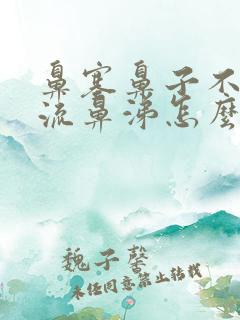 鼻塞鼻子不
流鼻涕怎麼
魏子馨
未经同意禁止转载